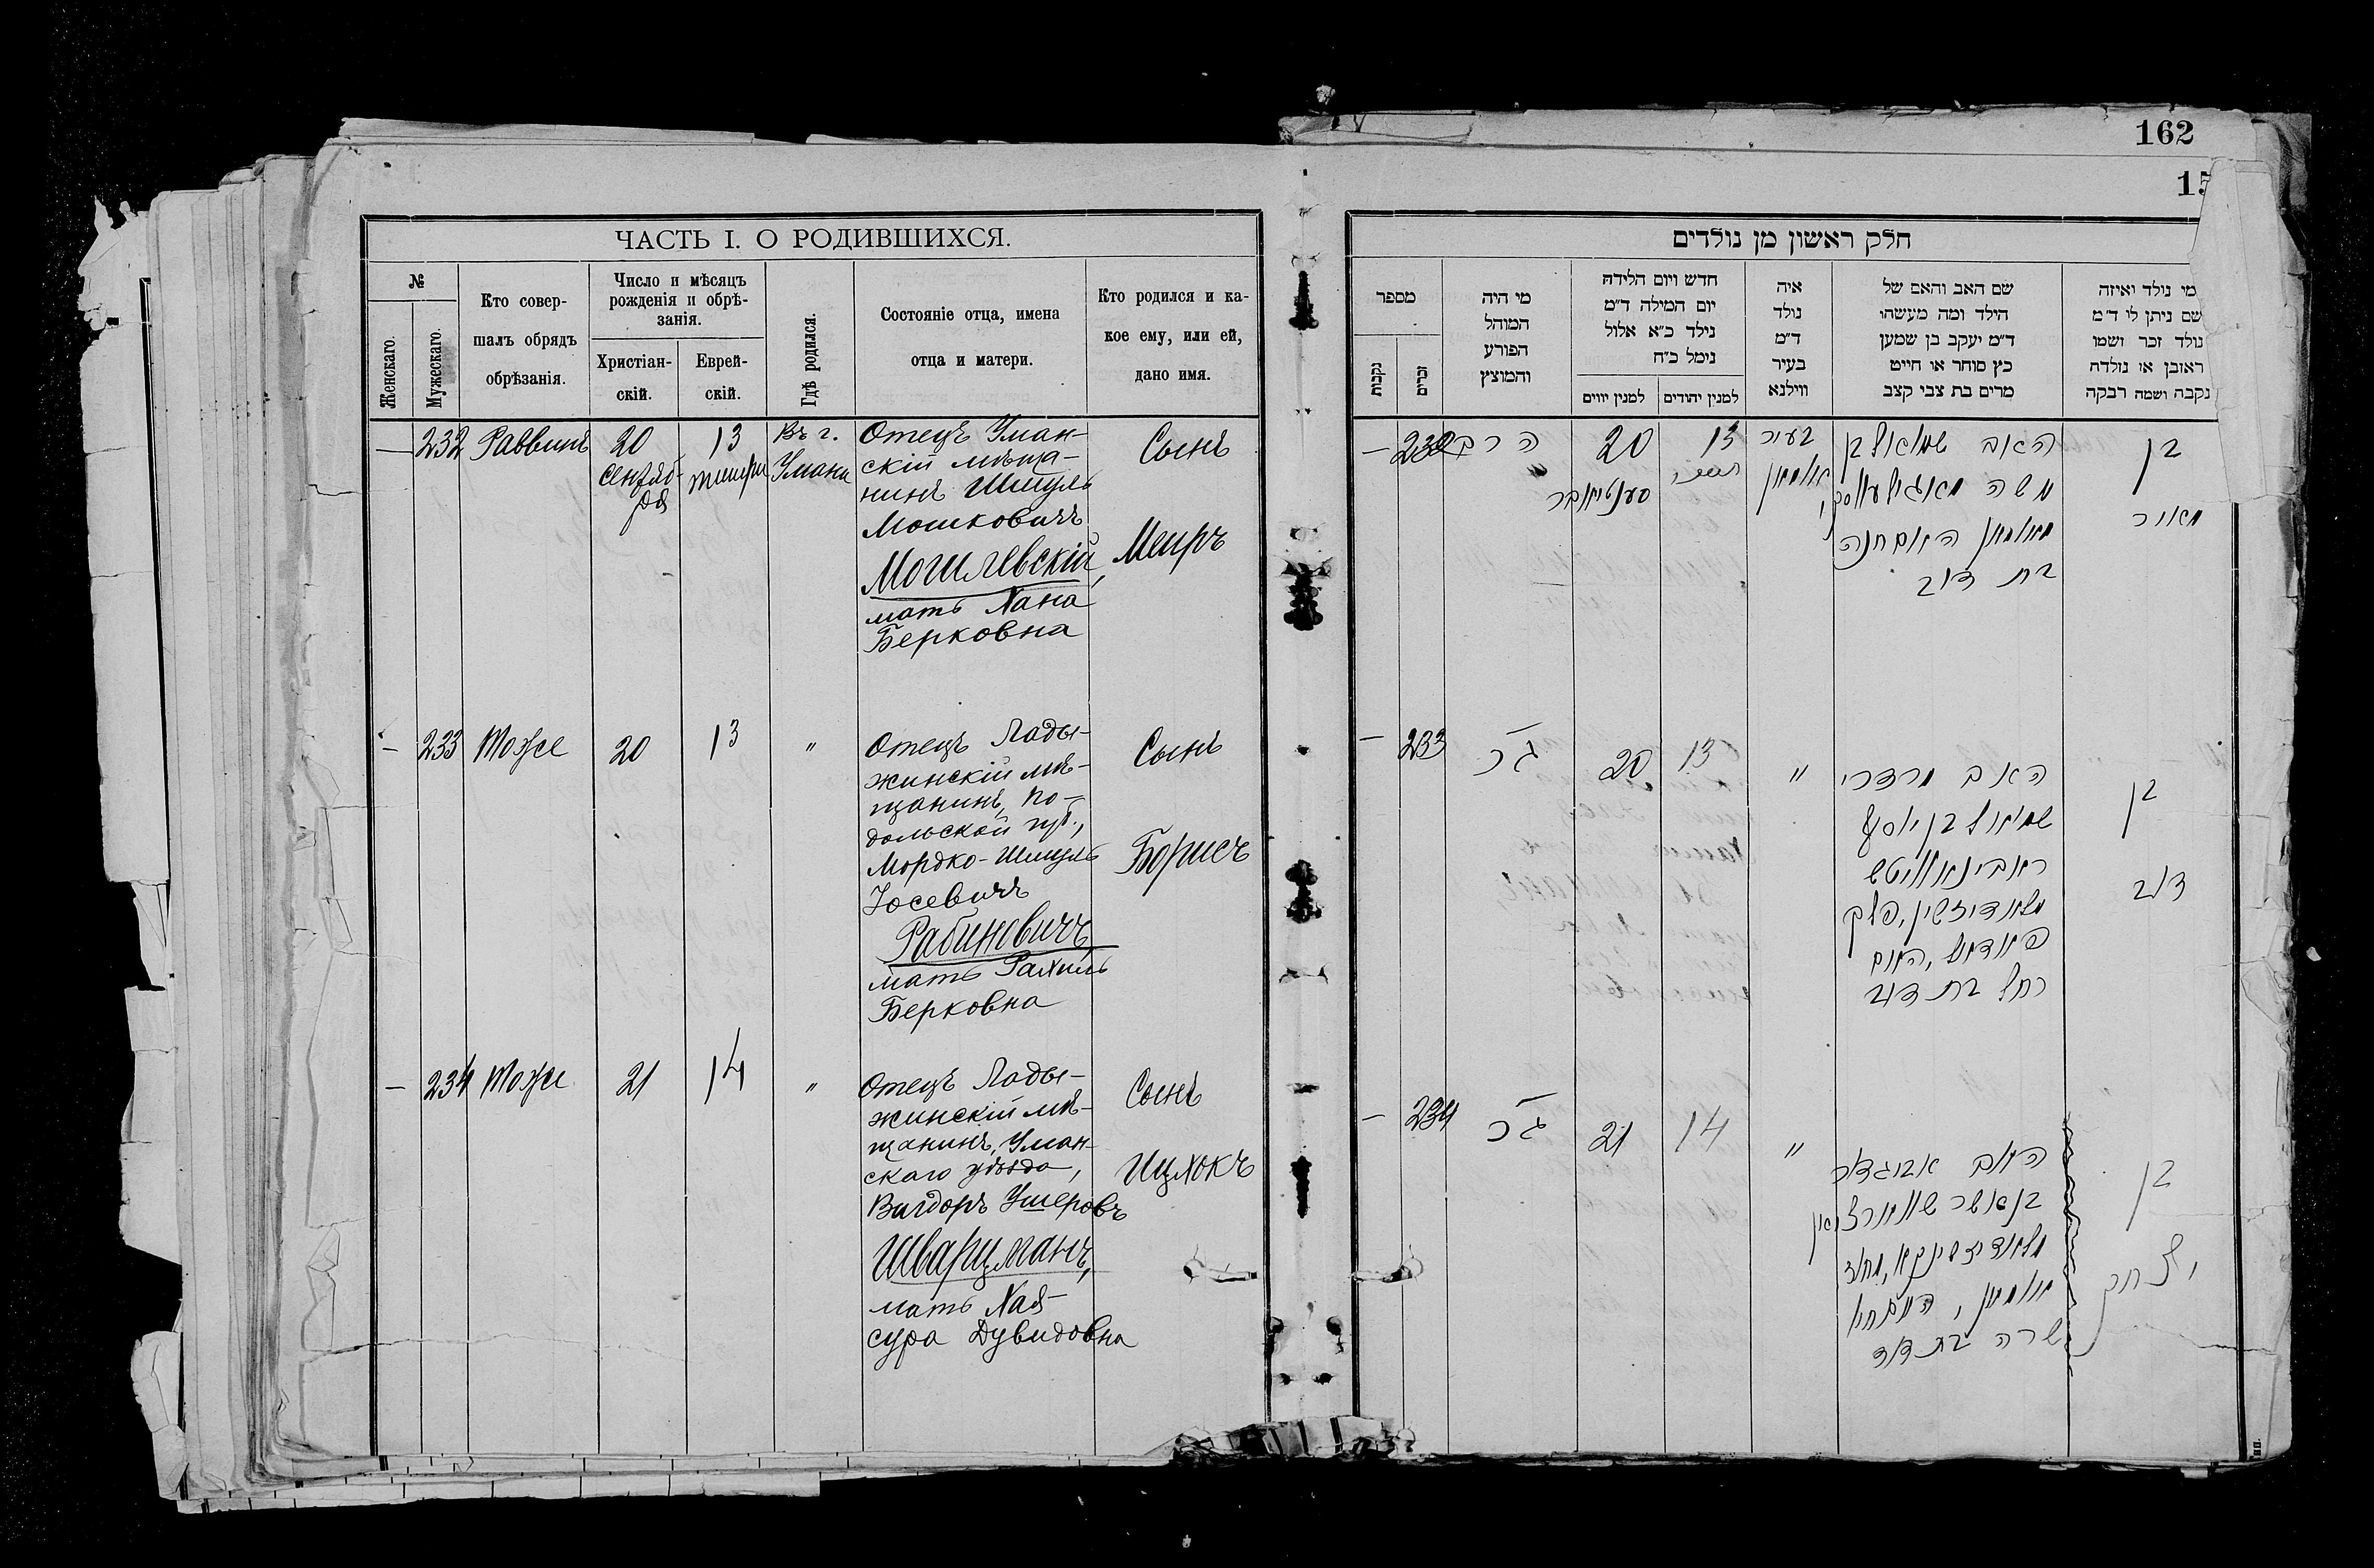 162
ЧАСТЬ I. О РОДИВШИХСЯ.
№
Женскаго.
Мужескаго.
Кто совер-
шалъ обрядъ
обрѣзанія.
Число и мѣсяцъ
рожденія и обрѣ-
занія.
Христіан-
скій.
Еврей-
скій.
Гдѣ родился.
Состояніе отца, имена
отца и матери.
Кто родился и ка-
кое ему, или ей,
дано имя.
— 232 Раввинъ 20 13 Въ г.
Сентяб-
ря
тишри Умани
Отецъ Уман-
скій мѣща-
нинъ Шмуль
Мошковичъ
Могилевскій,
мать Хана
Берковна
Сынъ
Меиръ
— 233 Тоже 20 13 "
Отецъ Лады-
жинскій мѣ-
щанинъ, По-
дольской губ.,
Мордко-Шмуль
Іосевичъ
Рабиновичъ,
мать Рахиль
Берковна
Сынъ
Борисъ
— 234 Тоже 21 14 "
Отецъ Лады-
жинскій мѣ-
щанинъ, Уман-
скаго уѣзда,
Вигдоръ Ушеровъ
Шварцманъ,
мать Хая-
сура Дувидовна
Сынъ
Ицхокъ
חלק ראשון מן נולדים
מספר
נקבות
זכרים
מי היה
המוהל
הפורע
והמוצץ
חדש ויום הלידה
יום המילה ד״מ
נילד כ״א אלול
נימל כ״ח
למנין יווים
למנין יהודים
איה
נולד
ד״מ
בעיר
ווילנא
שם האב והאם של
הילד ומה מעשהו
ד״מ יעקב בן שמען
כץ סוחר או חייט
מרים בת צבי קצב
מי נולד ואיזה
שם ניתן לו ד״מ
נולד זכר ושמו
ראובן או נולדה
נקבה ושמה רבקה
— 232 הרב 20 13 בעיר
סענטיאבר תשרי אומאן
האב שמואל בן
משה מאגילעווסקי,
מאומאן האם חנה
בת דוב
בן
מאיר
— 233 גכ 20 13 "
האב מרדכי
שמואל בן יוסף
ראבינאוויטש
מלאדיזשין, פלך
פאדאל, האם
רחל בת דוב
בן
דוב
— 234 גכ 21 14 "
האב אביגדור
בן אשר שווארצמאן
האם חיה
שרה בת דוד
בן
יצחק